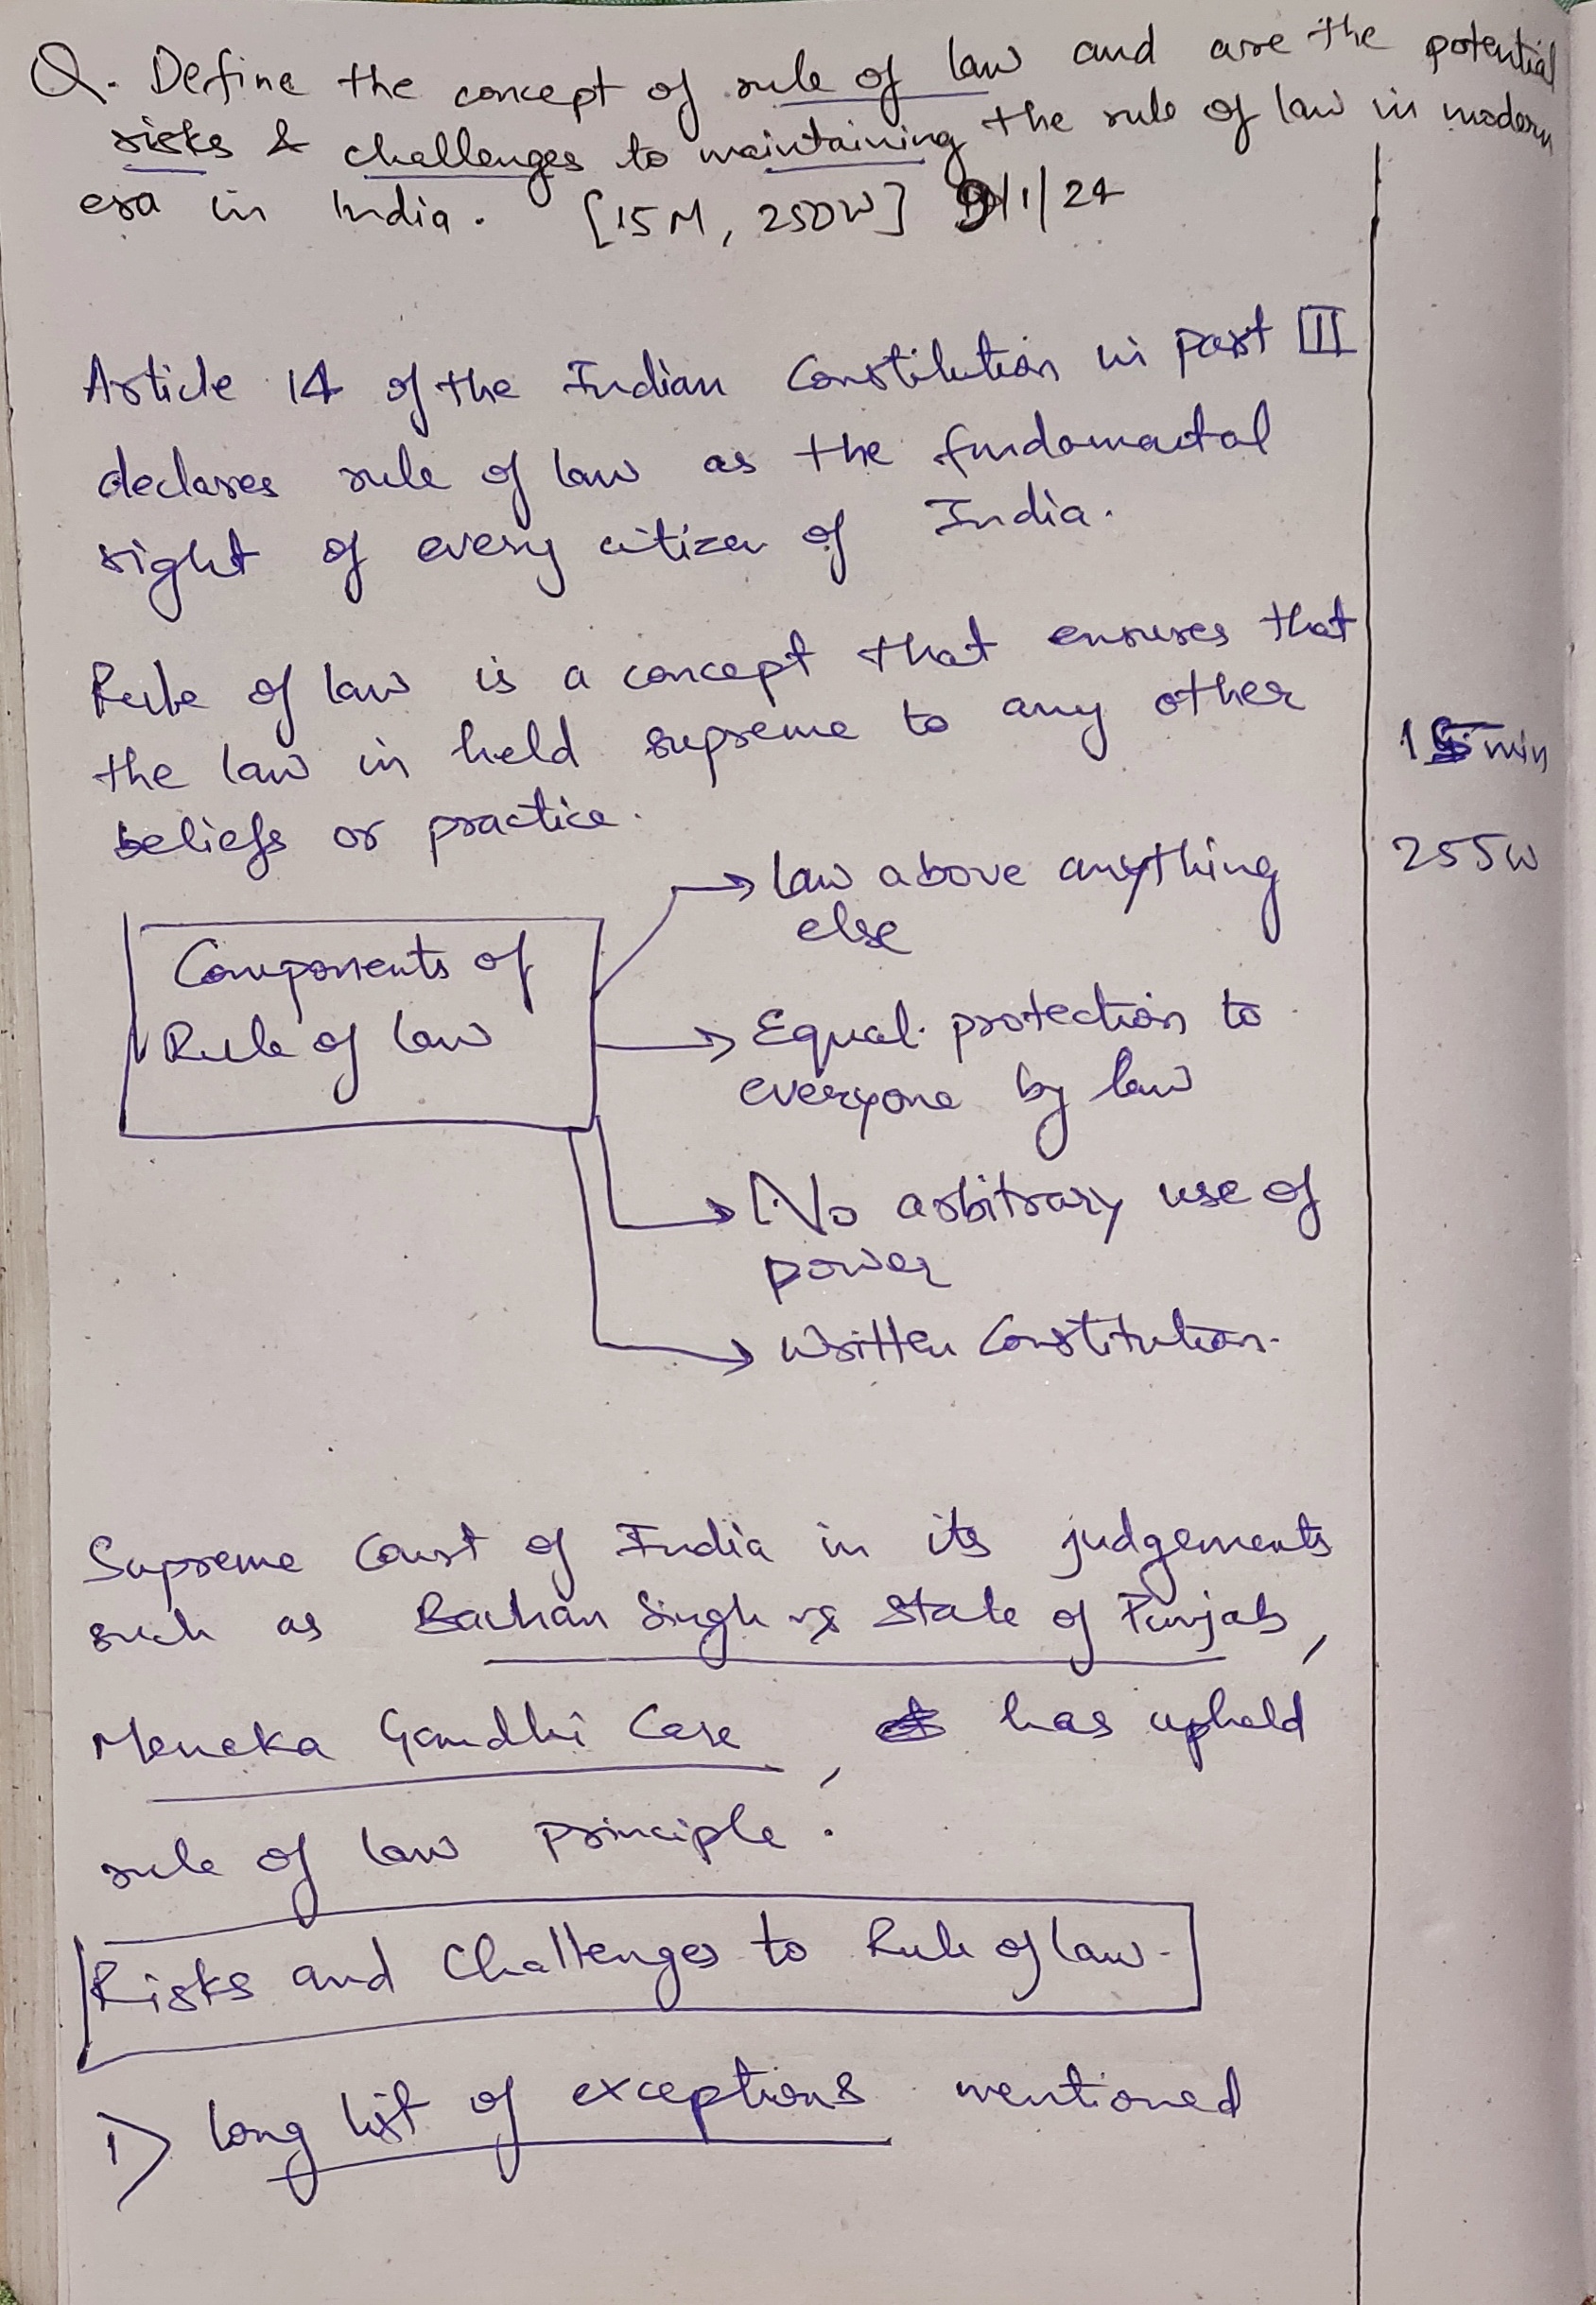 Q. Define the concept of rule of law and are the potential
risks & challenges to maintaining the rule of law in modern
era in India. [15M, 250W] 9/1/24
Article 14 of the Indian Constitution in part III
declares rule of law as the fundamental
right of every citizen of India.
Rule of law is a concept that ensures that
the law in held supreme to any other
beliefs or practice.
15 min
255W
Components of
Rule of law
→ law above anything
else
→ Equal protection to
everyone by law
→ No arbitrary use of
power
→ Written Constitution.
Supreme Court of India in its judgements
such as Bachan Singh vs State of Punjab,
Meneka Gandhi Case, has upheld
rule of law principle.
Risks and Challenges to Rule of law.
1) long list of exceptions mentioned